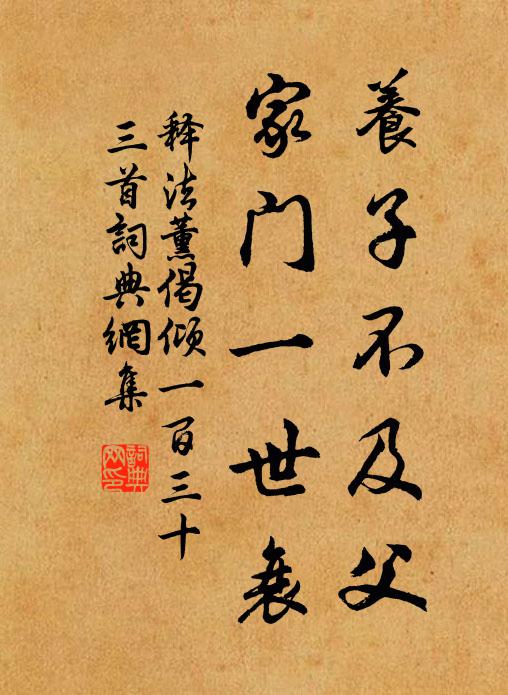 養子不及父
家门一世衰
释法薰偈倾一百三十
三首詞典網集
詞典網印